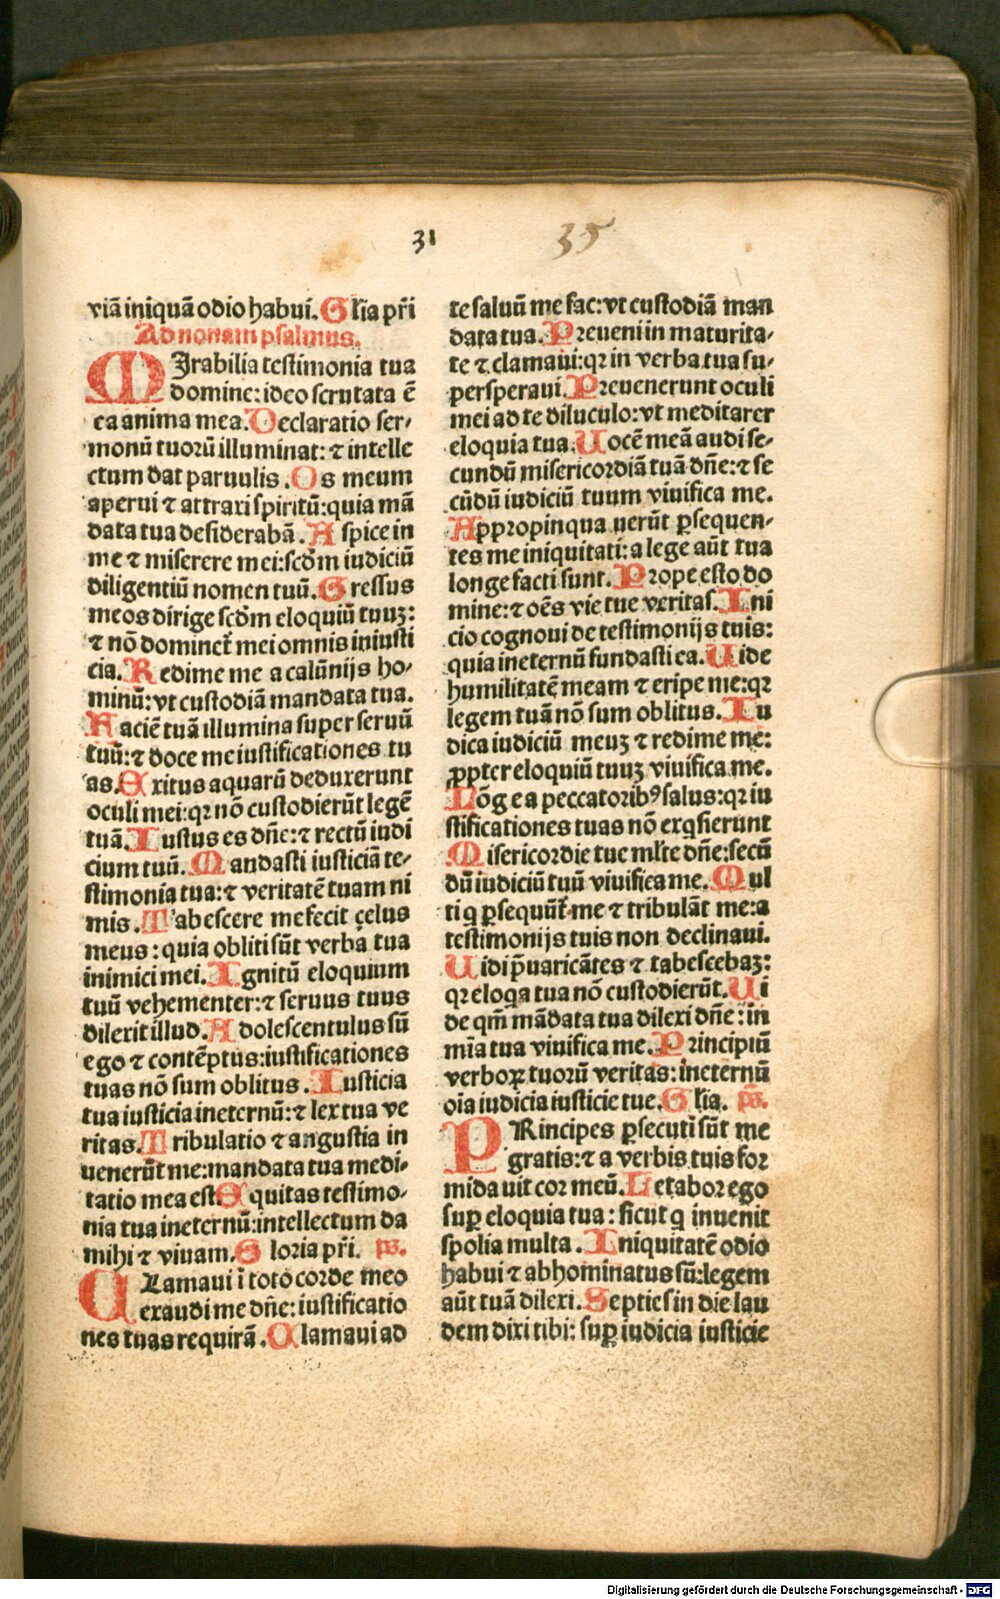 31 35
viā iniquā odio habui. Glīa pr̄i
Ad nonam psalmus.
MIrabilia testimonia tua
domine: ideo scrutata ē
ea anima mea. Declaratio ser-
monū tuorū illuminat: ⁊ intelle
ctum dat paruulis. Os meum
aperui ⁊ attraxi spiritū: quia mā
data tua desiderabā. Aspice in
me ⁊ miserere mei: scd̄m iudiciū
diligentiū nomen tuū. Gressus
meos dirige scd̄m eloquiū tuuʒ:
⁊ nō dominet̄ mei omnis iniusti
cia. Redime me a calūnijs ho-
minū: vt custodiā mandata tua.
Faciē tuā illumina super seruū
tuū: ⁊ doce me iustificationes tu
as. Exitus aquarū deduxerunt
oculi mei: qꝛ nō custodierūt legē
tuā. Iustus es dn̄e: ⁊ rectū iudi
cium tuū. Mandasti iusticiā te-
stimonia tua: ⁊ veritatē tuam ni
mis. Tabescere me fecit çelus
meus: quia obliti sūt verba tua
inimici mei. Ignitū eloquium
tuū vehementer: ⁊ seruus tuus
dilexit illud. Adolescentulus sū
ego ⁊ contēptus: iustificationes
tuas nō sum oblitus. Iusticia
tua iusticia ineternū: ⁊ lex tua ve
ritas. Tribulatio ⁊ angustia in
uenerūt me: mandata tua medi-
tatio mea est. Equitas testimo-
nia tua ineternū: intellectum da
mihi ⁊ viuam. Gloria pr̄i. ps.
CLamaui ī toto corde meo
exaudi me dn̄e: iustificatio
nes tuas requirā. Clamaui ad
te saluū me fac: vt custodiā man
data tua. Preueni in maturita-
te ⁊ clamaui: qꝛ in verba tua su-
persperaui. Preuenerunt oculi
mei ad te diluculo: vt meditarer
eloquia tua. Uocē meā audi se-
cundū misericordiā tuā dn̄e: ⁊ se
cūdū iudiciū tuum viuifica me.
Appropinquauerūt ꝑsequen-
tes me iniquitati: a lege aūt tua
longe facti sunt. Prope esto do
mine: ⁊ oēs vie tue veritas. Ini
cio cognoui de testimonijs tuis:
quia ineternū fundasti ea. Uide
humilitatē meam ⁊ eripe me: qꝛ
legem tuā nō sum oblitus. Iu
dica iudiciū meuʒ ⁊ redime me:
ꝓpter eloquiū tuuʒ viuifica me.
Lōge a peccatoribꝰ salus: qꝛ iu
stificationes tuas nō exq̄sierunt
Misericordie tue ml̄te dn̄e: secū
dū iudiciū tuū viuifica me. Mul
ti q ꝑsequūt̄ me ⁊ tribulāt me: a
testimonijs tuis non declinaui.
Uidi p̄uaricātes ⁊ tabescebaʒ:
qꝛ eloqa tua nō custodierūt. Ui
de qm̄ mādata tua dilexi dn̄e: in
mīa tua viuifica me. Principiū
verboꝝ tuorū veritas: ineternū
oīa iudicia iusticie tue. Glīa. ps.
PRincipes ꝑsecuti sūt me
gratis: ⁊ a verbis tuis for
midauit cor meū. Letabor ego
suꝑ eloquia tua: sicut q inuenit
spolia multa. Iniquitatē odio
habui ⁊ abhominatus sū: legem
aūt tuā dilexi. Septies in die lau
dem dixi tibi: suꝑ iudicia iusticie
Digitalisierung gefördert durch die Deutsche Forschungsgemeinschaft - DFG